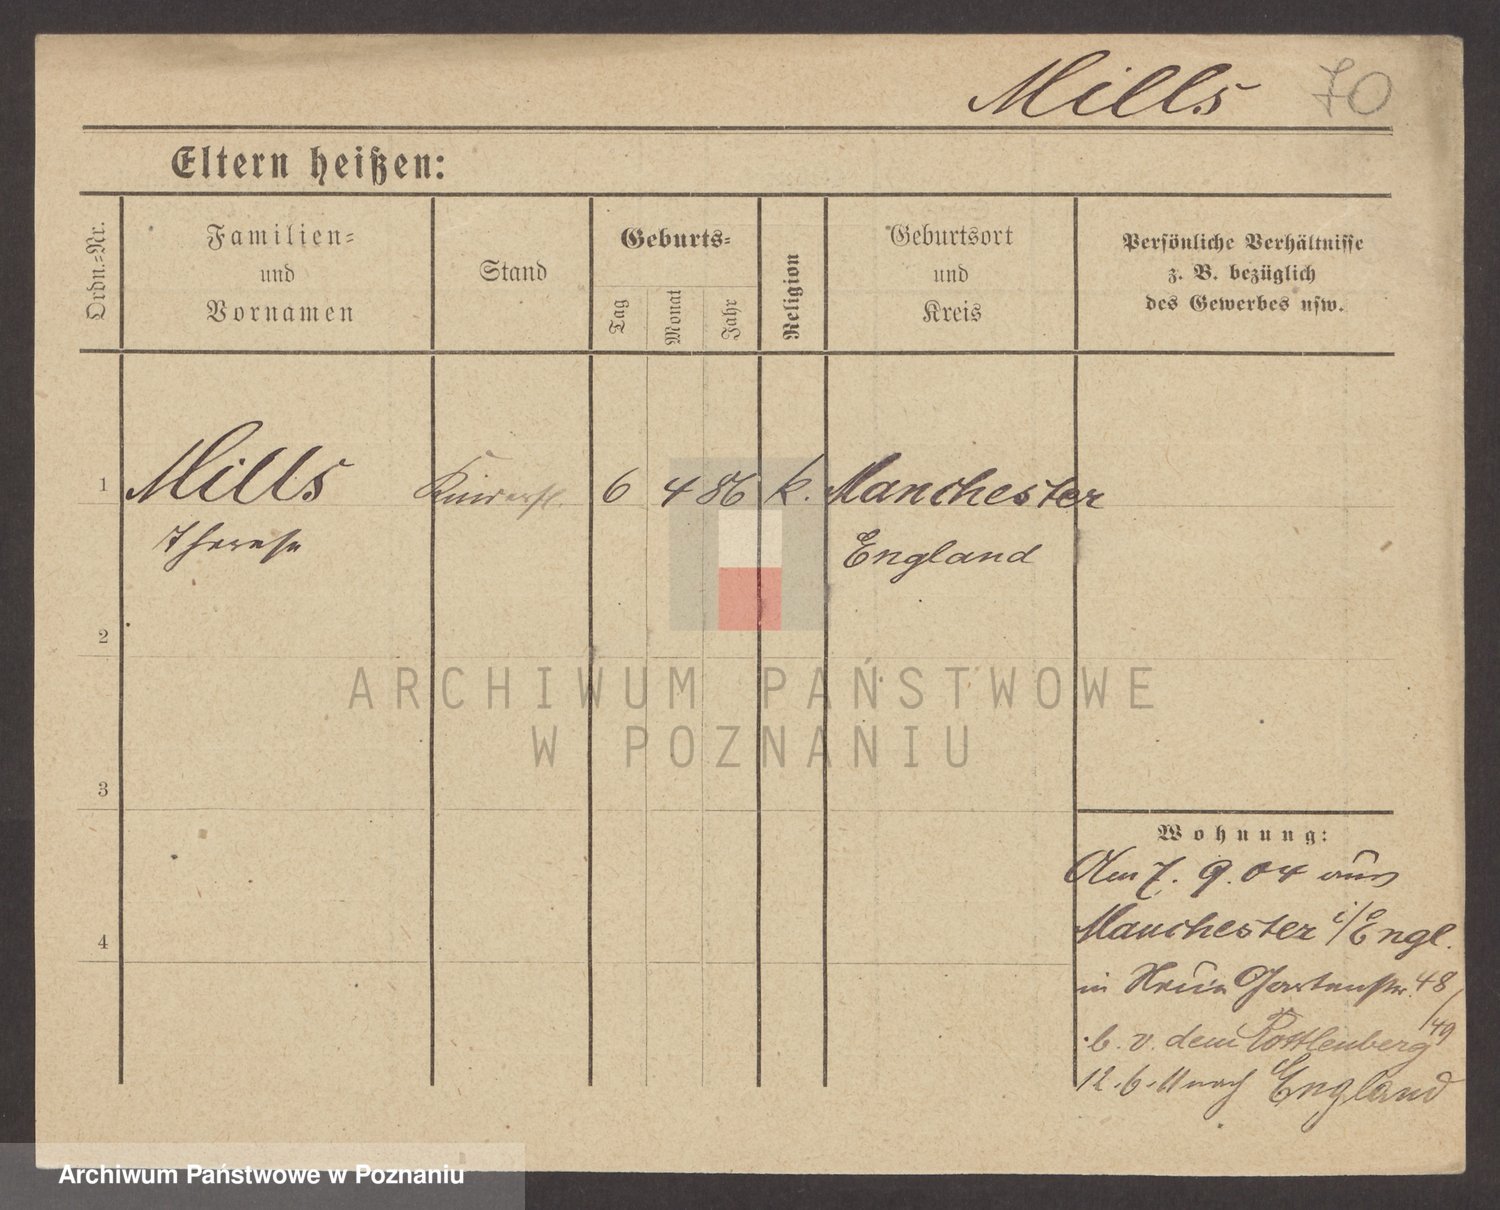 Mills 70
Eltern heißen:
Ordn.-Nr.
Familien-
und
Vornamen
Stand
Geburts-
Tag
Monat
Jahr
Religion
Geburtsort
und
Kreis
Persönliche Verhältnisse
z. B. bezüglich
des Gewerbes usw.
1 Mills 6 4 86 k. Manchester
Therese England
2
3
4
Wohnung:
Am 7. 9. 04 aus
Manchester i/Engl.
in Neue Gartenstr. 48
/49
b. v. dem
12. 6. 11 nach England
ARCHIWUM PAŃSTWOWE
W POZNANIU
Archiwum Państwowe w Poznaniu